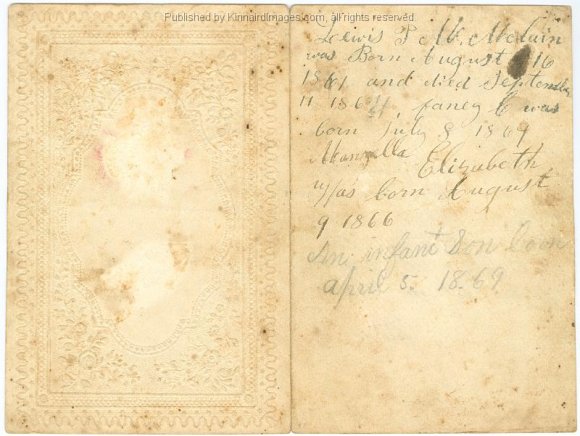 Published by KinnairdImages.com, all rights reserved.
Lewis P McMclain
was Born August 16
1861 and died September
11 1864 fancy C was
born July 8 1869
Elizabeth
Was born August
9 1866
An infant Son born
april 5. 1869